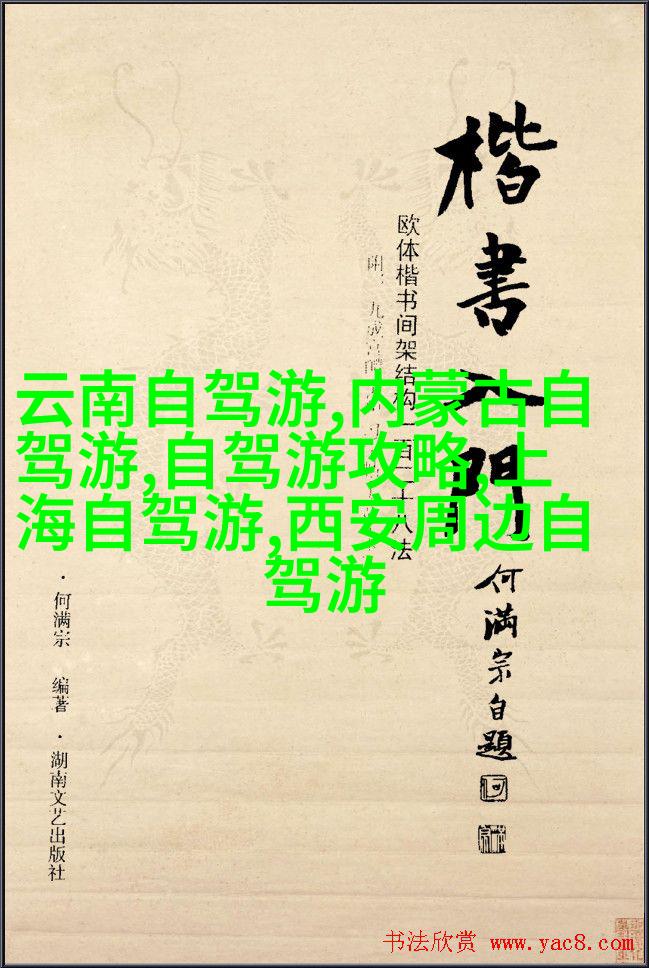 楷書入門
欧体楷书间架结构一百二十八法
何满宗自题
云南自驾游,内蒙古自
驾游,自驾游攻略,上
海自驾游,西安周边自
驾游
·何满宗 编著·湖南文艺出版社
书法欣赏 www.yac8.com